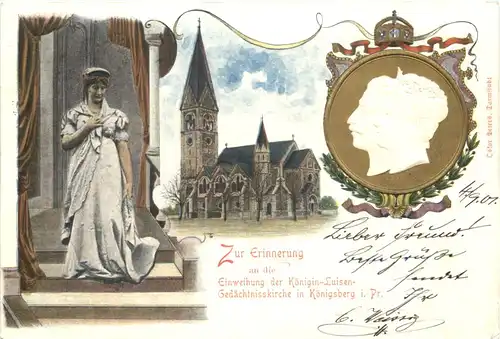 Zur Erinnerung
an die
Einweihung der Königin-Luisen-
Gedächtnisskirche in Königsberg i. Pr.
4/9.01.
Lieber Freund!
Beste Grüße
sendet
Ihr